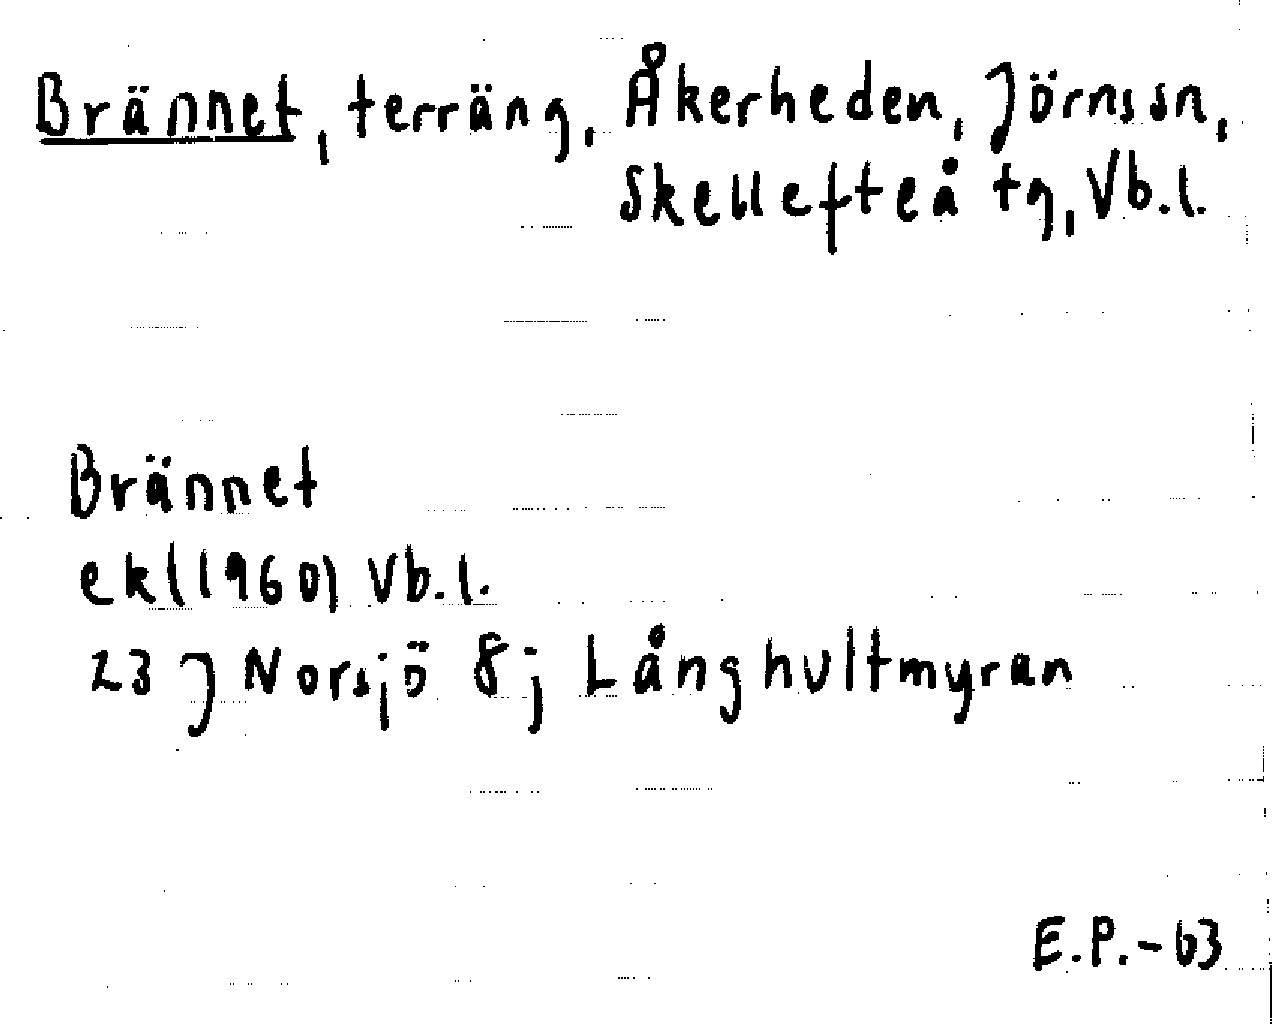 Brännet, terräng, Åkerheden, Jörnssn,
Skellefteå tg, Vb.l.
Brännet
ek(1960) Vb.l.
23 J Norsjö 8j Långhultmyran
E.P.-63